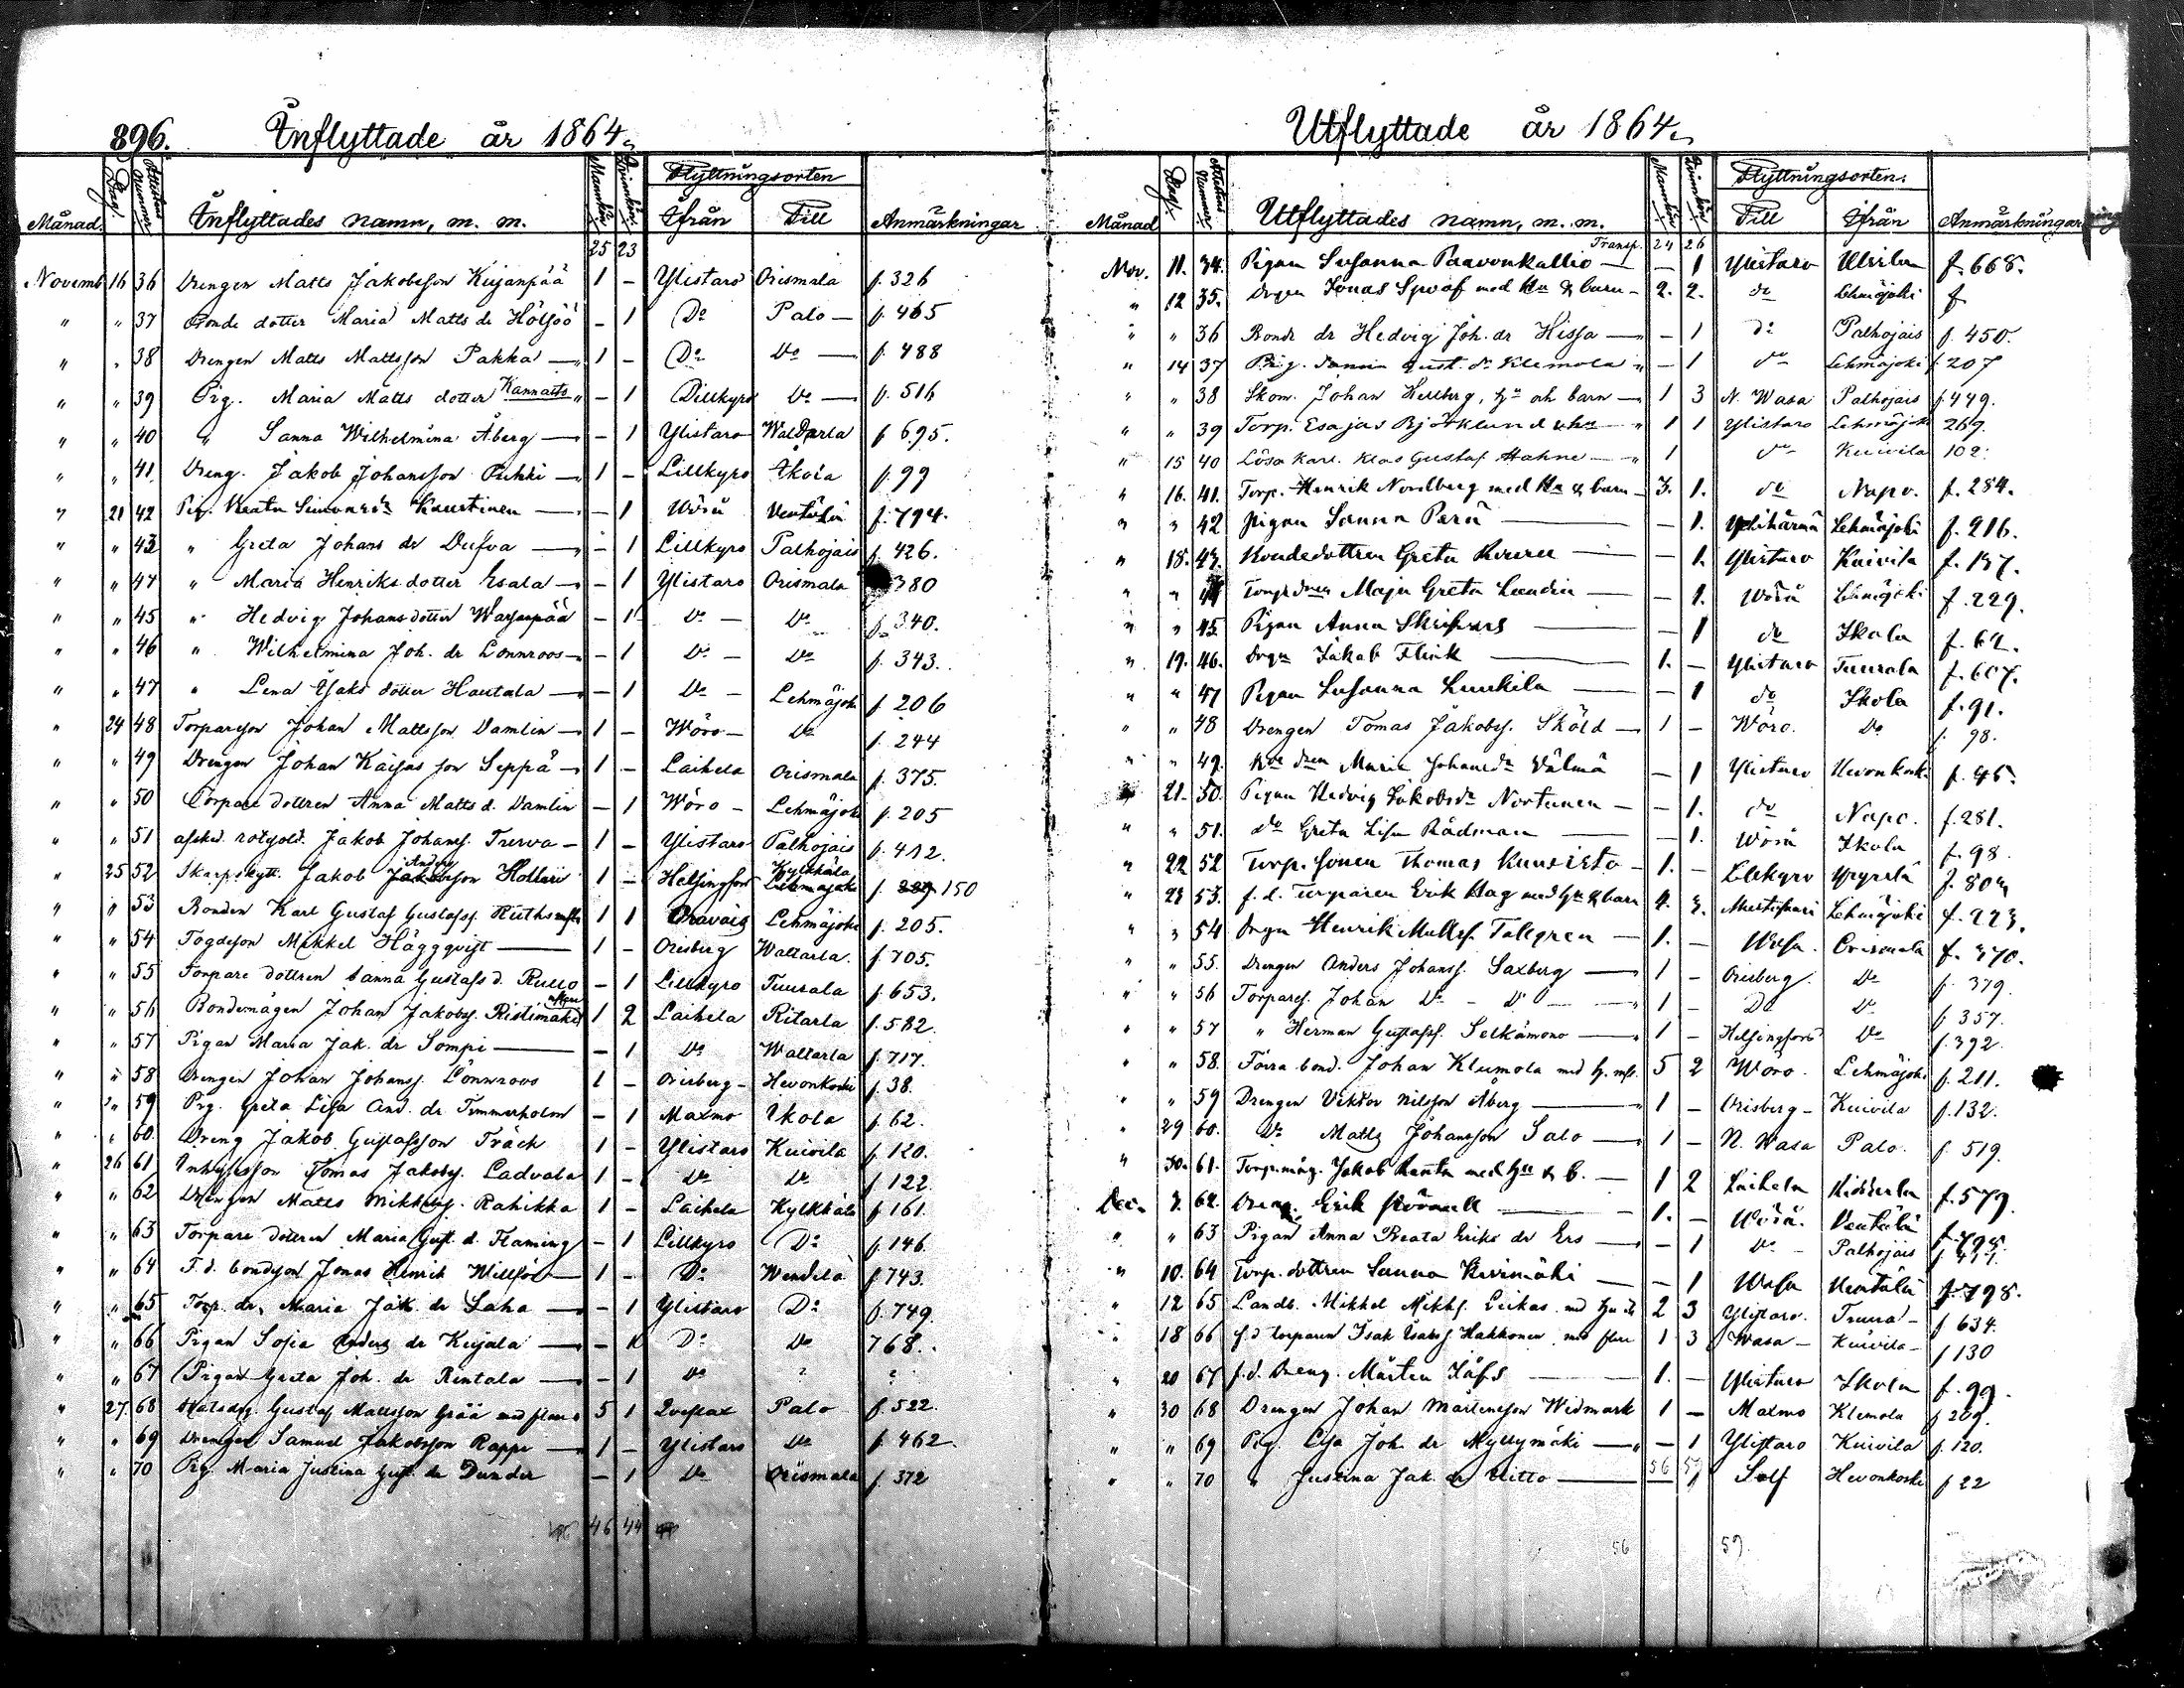 896. Inflyttade år 1864.
Månad. Dag. Attestens Nummer Inflyttades namn, m. m. Mankön Qvinnkön Flyttningsorten Ifrån Till Anmärkningar
25 23
Novemb 16 36 Drengen Matts Jakobsson Kujanpää 1 - Ylistaro Orismala f. 326
" " 37 Bonde dotter Maria Matts dr Hölsöö - 1 Do Palo f. 465
" " 38 Drengen Matts Mattsson Pakka 1 - Do Do f. 488
" " 39 Pig. Maria Matts dotter Kannatts - 1 Lillkyro Do f. 516
" " 40 " Sanna Wilhelmina Åberg - 1 Ylistaro Waldarla f 695.
" " 41 Dreng. Jakob Johansson Pihki 1 - Lillkyro Ikola f. 99
" 21 42 Pig. Beata Simonsdr Kaustinen - 1 Wörå Ventälä f. 794.
" " 43 " Greta Johans dr Dufva - 1 Lillkyro Palhojais f. 426.
" " 44 " Maria Henriks dotter Esala - 1 Ylistaro Orismala 380
" " 45 " Hedvig Johans dotter Warsanpää - 1 Do Do f. 340.
" " 46 " Wilhelmina Joh. dr Lonnroos - 1 Do Do f. 343.
" " 47 " Lena Isaks dotter Hautala - 1 Do Lehmäjoki f 206
" 24 48 Torpareson Johan Mattsson Damlin 1 - Wöro Do f. 244
" " 49 Drengen Johan Kaisas son Seppä 1 - Laihela Orismala f. 375.
" " 50 Torpare dottren Anna Matts d. Damlin - 1 Wöro Lehmäjoki f. 205
" " 51 afsked. rotesold. Jakob Johanss. Trerva 1 - Ylistaro Palhojais f. 412.
" 25 52 Skarpskytt. Jakob Anders son Hollari 1 - Helsingfors Kylkkälä f. 150
" " 53 Bonden Karl Gustaf Gustafss. Ruths 1 1 Oravais Lehmäjoki f. 205.
" " 54 Fogdeson Mikkel Häggqvist 1 - Orisberg Waltarla. f 705.
" " 55 Torpare dottren Sanna Gustafs d. Rullo - 1 Lillkyro Tuurala f 653.
" " 56 Bondemågen Johan Jakobss. Ristimäki 1 2 Laihela Ritarla f. 582.
" " 57 Pigan Maria Jak. dr Sompi - 1 Do Waltarla f. 717.
" " 58 Drengen Johan Johanss. Lönnroos 1 - Orisberg Hevonkoski f. 38.
" " 59 Pig. Greta Lisa And. dr Timmerholm - 1 Maxmo Ikola f 62.
" " 60. Dreng Jakob Gustafsson Träck 1 - Ylistaro Kuivila f 120.
" 26 61 Inhysesson Tomas Jakobss. Ladvala 1 - Do Do f 122
" " 62 Drengen Matts Mikkelss. Rahikka 1 - Laihela Kylkkälä f 161.
" " 63 Torpare dottren Maria Gust. d. Flaming - 1 Lillkyro Do f. 146
" " 64 F. d. bondeson Jonas Henrik Willsöo 1 - Do Wendelä f 743.
" " 65 Torp. dr, Maria Jak. dr Laha - 1 Ylistaro Do f. 749.
" " 66 Pigan Sofia Anders dr Kujala - 1 Do Do 768.
" " 67 Pigan Greta Joh. dr Rintala - 1 Do ? ?
" 27. 68 Gustaf Mattsson Gråå med flera 5 1 Qveflax Palo f. 522.
" " 69 Drengen Samuel Jakobsson Rappe 1 - Ylistaro Do f 462.
" " 70 Pig. Maria Justina Gust. dr Dunder - 1 Do Orismala f. 372
46 44
Utflyttade år 1864.
Månad Dag. Attestens Nummer Utflyttades namn, m. m. Mankön Qvinnkön Flyttningsorten. Till Ifrån Anmärkningar
Transp. 24 26
Nov. 11. 34. Pigan Susanna Paavonkallio - 1 Ylistaro Ulvila f. 668.
" 12 35. Dregen Jonas Spoof med hu & barn 2. 2. do Lehmäjoki f
" " 36 Bonde dr Hedvig Joh. dr Hissa - 1 do Palhojais f. 450.
" 14 37 Pig. Sanna Gust. dr Klemola - 1 do Lehmäjoki f 207
" " 38 Skom. Johan Hellberg, hu och barn 1 3 N. Wasa Palhojais f. 449.
" " 39 Torp. Esajas Björklund o hu 1 1 Ylistaro Lehmäjoki 269.
" 15 40 Lösa karl. Klas Gustaf Hahne 1 do Kuivila 102.
" 16. 41. Torp. Henrik Nordberg med hu & barn 3. 1. do Napo. f. 284.
" " 42 Pigan Sanna Perä - 1. Ylihärmä Lehmäjoki f. 216.
" 18. 43. Bondedottren Greta Kouru - 1. Ylistaro Kuivila f. 137.
" " 44 Torpdren Maja Greta Lundin - 1. Wörå Lehmäjoki f. 229.
" " 45. Pigan Anna Skrifvars - 1 do Ikola f. 62.
" 19. 46. Drgn Jakob Flink 1. - Ylistaro Tuurala f. 607.
" " 47 Pigan Susanna Luukila - 1 do Ikola f. 91.
" " 48 Drengen Tomas Jakobss. Sköld 1 - Wöro. Do f. 98.
" " 49. Bde dren Maria Johansdr Välmä - 1 Ylistaro Hevonkoski f. 45.
" 21. 50. Pigan Hedvig Jakobsdr Nortunen - 1. do Napo. f. 281.
" " 51. do Greta Lisa Rådman - 1. Wörå Ikola f. 98
" 22 52 Torp. sonen Thomas Kuusisto 1. - Lillkyro f. 80
" 23 53. f. d. Torparen Erik Hag med hu & barn 4. 3. Mustasaari Lehmäjoki f. 223.
" " 54 Drgn Henrik Mattss. Tallgren 1. - Wasa. Orismala f. 370.
" " 55. Drengen Anders Johanss. Saxberg 1 - Orisberg. Do f. 379.
" " 56 Torpares. Johan Do - Do 1 - Do Do f. 357.
" " 57 " Herman Gustafss. Selkämono 1 - Helsingfors Do f. 392.
" " 58. Förra bond. Johan Klemola med h. mfl. 5 2 Wöro. Lehmäjoki f. 211.
" " 59 Drengen Viktor Nilsson Åberg 1 - Orisberg Kuivila f. 132.
" 29 60. Do Matts Johansson Salo 1 - N. Wasa Palo. f. 519.
" 30. 61. Torp.måg. Jakob Ranta med hu & b. 1 2 Laihela f. 579.
Dec. 7. 62. Dreng. Erik 1. - Wörå. Ventälä f. 798.
" " 63 Pigan Anna Beata Eriks dr Ers - 1 Do Palhojais
" 10. 64 Torp. dottren Sanna Kivimäki - 1 Wasa Ventälä f. 798.
" 12 65 Landb. Mikkel Mikkss. Leikas md hu & 2 3 Ylistaro. Tuura- f 634.
" 18 66 f d torparen Isak Isakss Hakkonen med flere 1 3 Wasa Kuivila f 130
" 20 67 f. d. Dreng. Mårten Jåfs 1. - Ylistaro Ikola f. 99.
" 30 68 Drengen Johan Mårtensson Widmark 1 - Maxmo Klemola f 209.
" " 69 Pig. Lisa Joh. dr Myllymäki - 1 Ylistaro Kuivila f. 120.
" " 70 " Justina Jak. dr Vitto - 1 Solf Hevonkoski f 22
56 57
56 57.